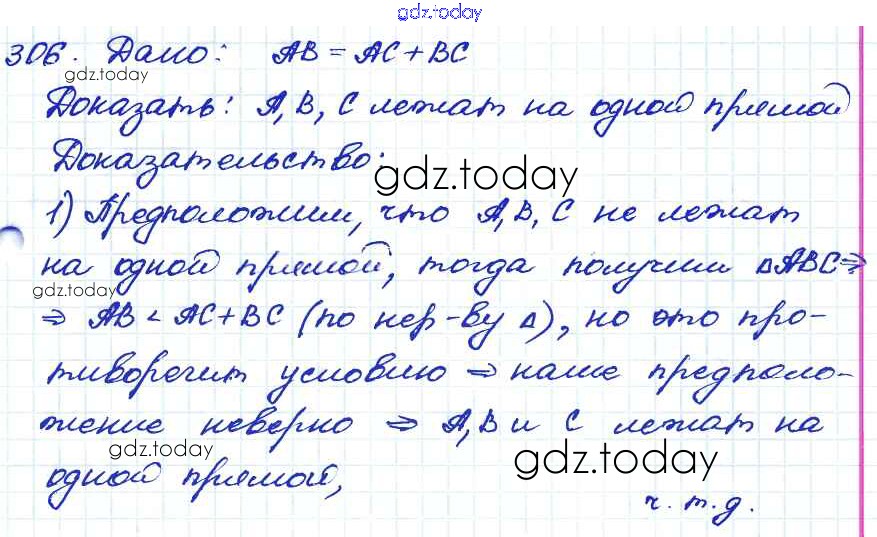 gdz.today
306. Дано: AB = AC + BC
gdz.today
Доказать: A, B, C лежат на одной прямой
Доказательство:
gdz.today
1) Предположим, что A, B, C не лежат
на одной прямой, тогда получим △ABC ⇒
gdz.today
⇒ AB < AC + BC (по нер-ву △), но это про-
тиворечит условию ⇒ наше предполо-
жение неверно ⇒ A, B и C лежат на
gdz.today
gdz.today
одной прямой,
ч. т. д.